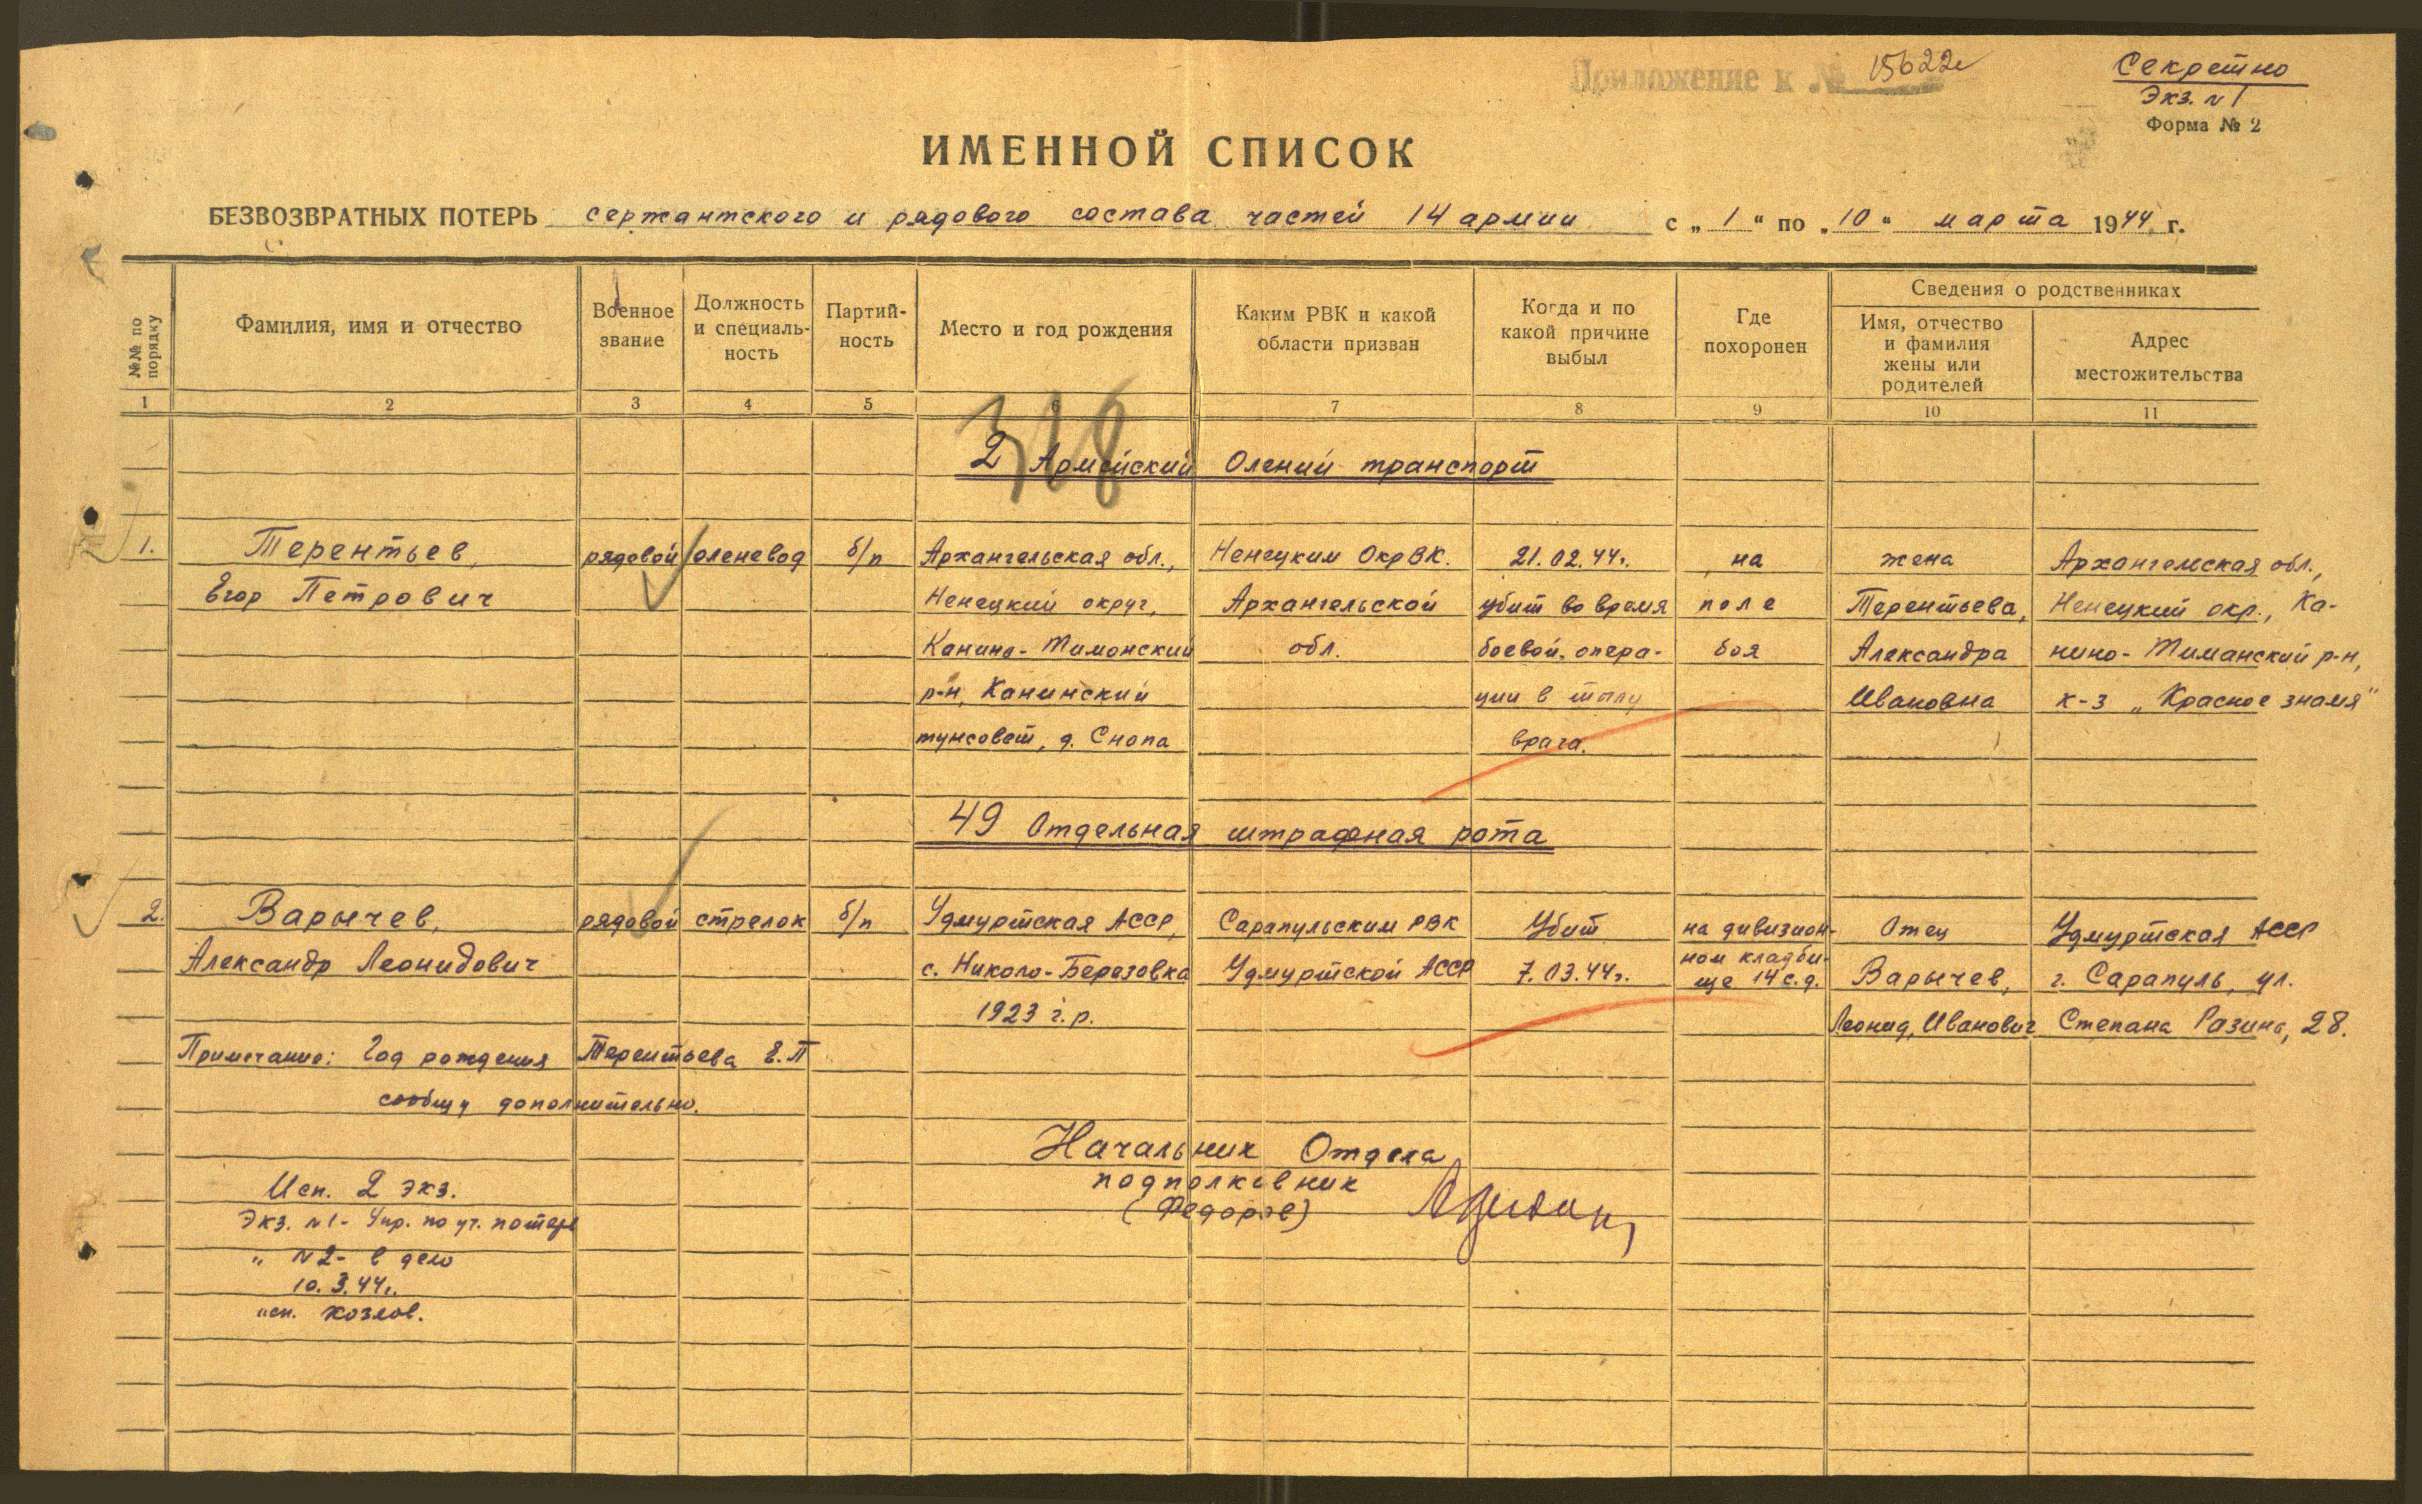 Приложение к № 15622с
Секретно
Экз. №1
Форма № 2
ИМЕННОЙ СПИСОК
БЕЗВОЗВРАТНЫХ ПОТЕРЬ сержантского и рядового состава частей 14 армии с „1“ по „10“ марта 1944 г.
№№ по порядку
Фамилия, имя и отчество
Военное звание
Должность и специаль-ность
Партий-ность
Место и год рождения
Каким РВК и какой области призван
Когда и по какой причине выбыл
Где похоронен
Сведения о родственниках
Имя, отчество и фамилия жены или родителей
Адрес местожительства
1 2 3 4 5 6 7 8 9 10 11
318
2 Армейский Олений транспорт
1. Терентьев, рядовой оленевод б/п Архангельская обл., Ненецким ОкрВК. 21.02.44г. на жена Архангельская обл.,
Егор Петрович Ненецкий округ, Архангельской убит во время поле Терентьева, Ненецкий окр., Ка-
Канино-Тиманский обл. боевой опера- боя Александра нино-Тиманский р-н,
р-н, Канинский ции в тылу Ивановна к-з „Красное знамя“
тунсовет, д. Снопа врага.
49 Отдельная штрафная рота
2. Варычев, рядовой стрелок б/п Удмуртская АССР, Сарапульским РВК Убит на дивизион- Отец Удмуртская АССР
Александр Леонидович с. Николо-Березовка Удмуртской АССР 7.03.44г. ном кладби-ще 14 с.д. Варычев, г. Сарапуль, ул.
1923 г.р. Леонид Иванович Степана Разина, 28.
Примечание: Год рождения Терентьева Е.П
сообщу дополнительно.
Начальник Отдела
подполковник
(Федоров)
Исп. 2 экз.
Экз. №1- Упр. по уч. потерь
„ №2- в дело
10.3.44г.
исп. Козлов.